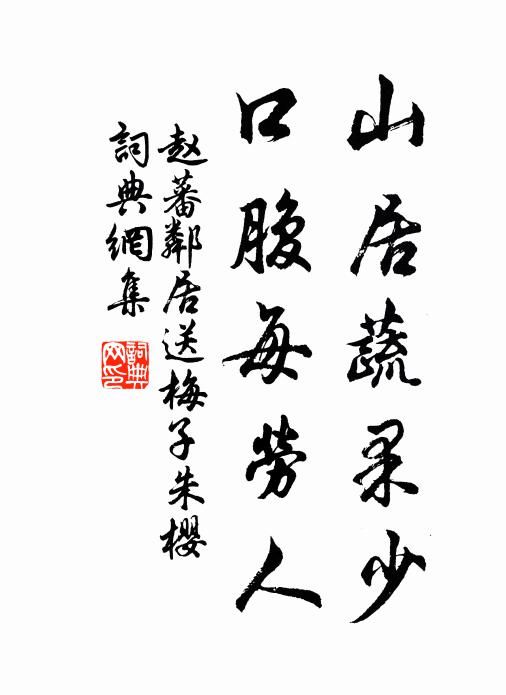 山居蔬果少
口腹每勞人
赵蕃鄰居送梅子朱櫻
詞典網集
詞典網印